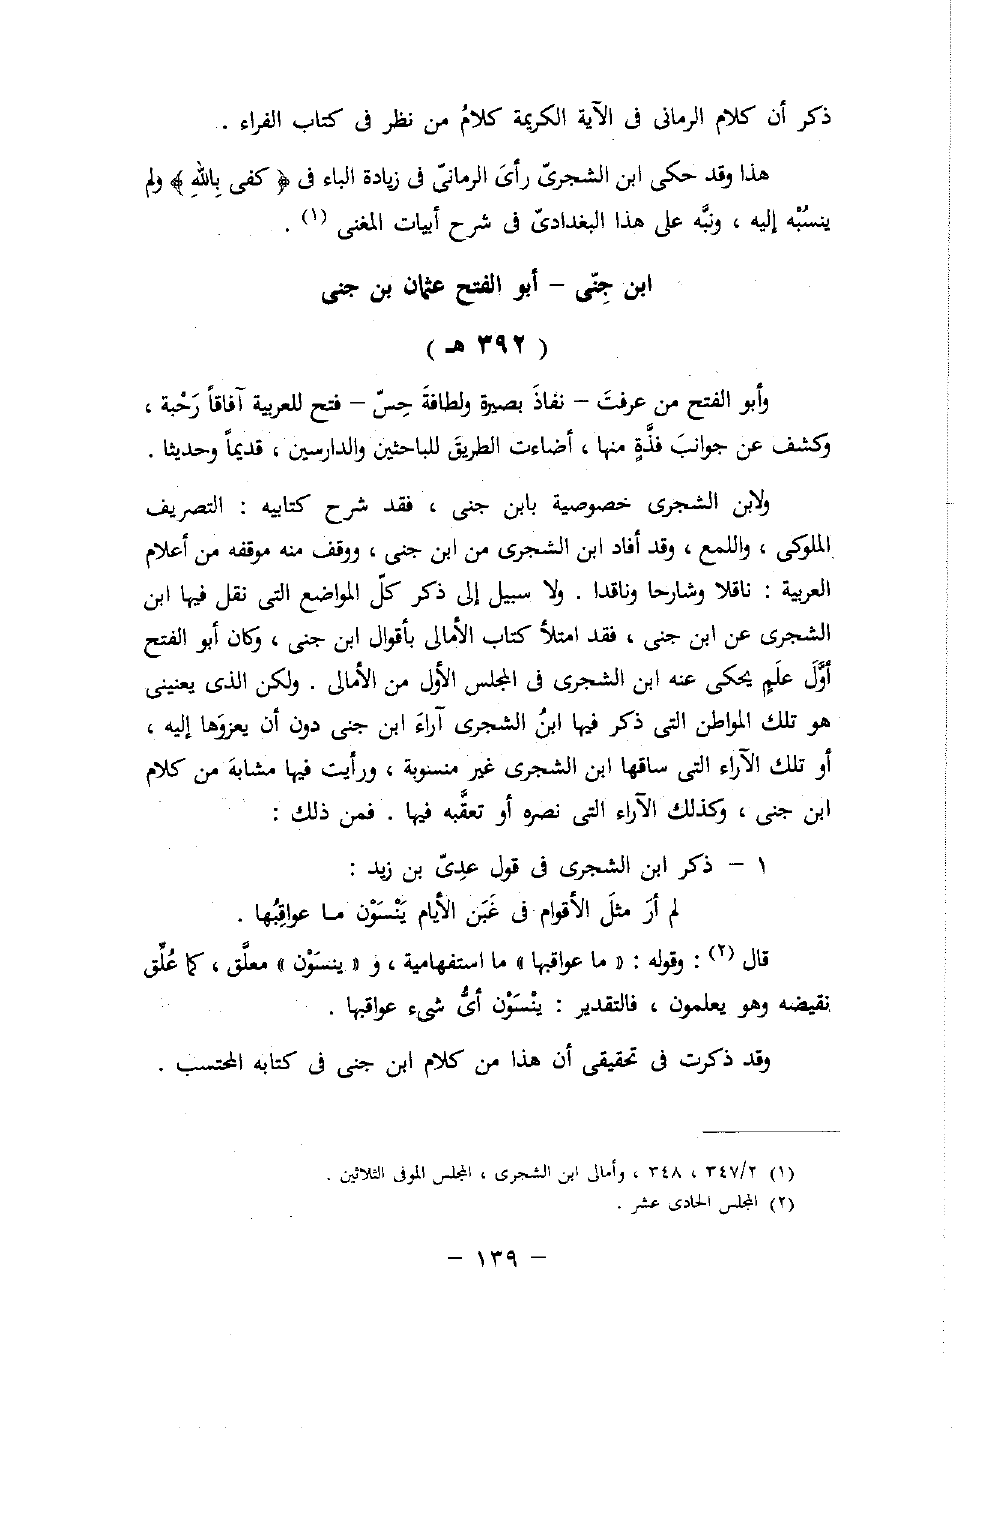 ذكر أن كلام الرمانى فى الآية الكريمة كلامُ من نظر فى كتاب الفراء .
هذا وقد حكى ابن الشجرىّ رأىَ الرمانىّ فى زيادة الباء فى ﴿ كفى بِاللهِ ﴾ ولم
ينسُبْه إليه ، ونبَّه على هذا البغدادىّ فى شرح أبيات المغنى (١) .
ابن جِنّى – أبو الفتح عثمان بن جنى
( ٣٩٢ هـ )
وأبو الفتح من عرفتَ – نفاذَ بصيرة ولطافةَ حِسّ – فتح للعربية آفاقاً رَحْبة ،
وكشف عن جوانبَ فذَّةٍ منها ، أضاءت الطريقَ للباحثين والدارسين ، قديماً وحديثا .
ولابن الشجرى خصوصية بابن جنى ، فقد شرح كتابيه : التصريف
الملوكى ، واللمع ، وقد أفاد ابن الشجرى من ابن جنى ، ووقف منه موقفه من أعلام
العربية : ناقلا وشارحا وناقدا . ولا سبيل إلى ذكر كلّ المواضع التى نقل فيها ابن
الشجرى عن ابن جنى ، فقد امتلأ كتاب الأمالى بأقوال ابن جنى ، وكان أبو الفتح
أوَّلَ علَمٍ يحكى عنه ابن الشجرى فى المجلس الأول من الأمالى . ولكن الذى يعنينى
هو تلك المواطن التى ذكر فيها ابنُ الشجرى آراءَ ابن جنى دون أن يعزوَها إليه ،
أو تلك الآراء التى ساقها ابن الشجرى غير منسوبة ، ورأيت فيها مشابهَ من كلام
ابن جنى ، وكذلك الآراء التى نصره أو تعقَّبه فيها . فمن ذلك :
١ – ذكر ابن الشجرى فى قول عدِىّ بن زيد :
لم أرَ مثلَ الأقوام فى غَبَن الأيام يَنْسَوْن ما عواقِبُها .
قال (٢) : وقوله : « ما عواقبها » ما استفهامية ، و « ينسَوْن » معلَّق ، كما عُلِّق
نقيضه وهو يعلمون ، فالتقدير : ينْسَوْن أىُّ شىء عواقبها .
وقد ذكرت فى تحقيقى أن هذا من كلام ابن جنى فى كتابه المحتسب .
(١) ٣٤٧/٢ ، ٣٤٨ ، وأمالى ابن الشجرى ، المجلس الموفى الثلاثين .
(٢) المجلس الحادى عشر .
– ١٣٩ –